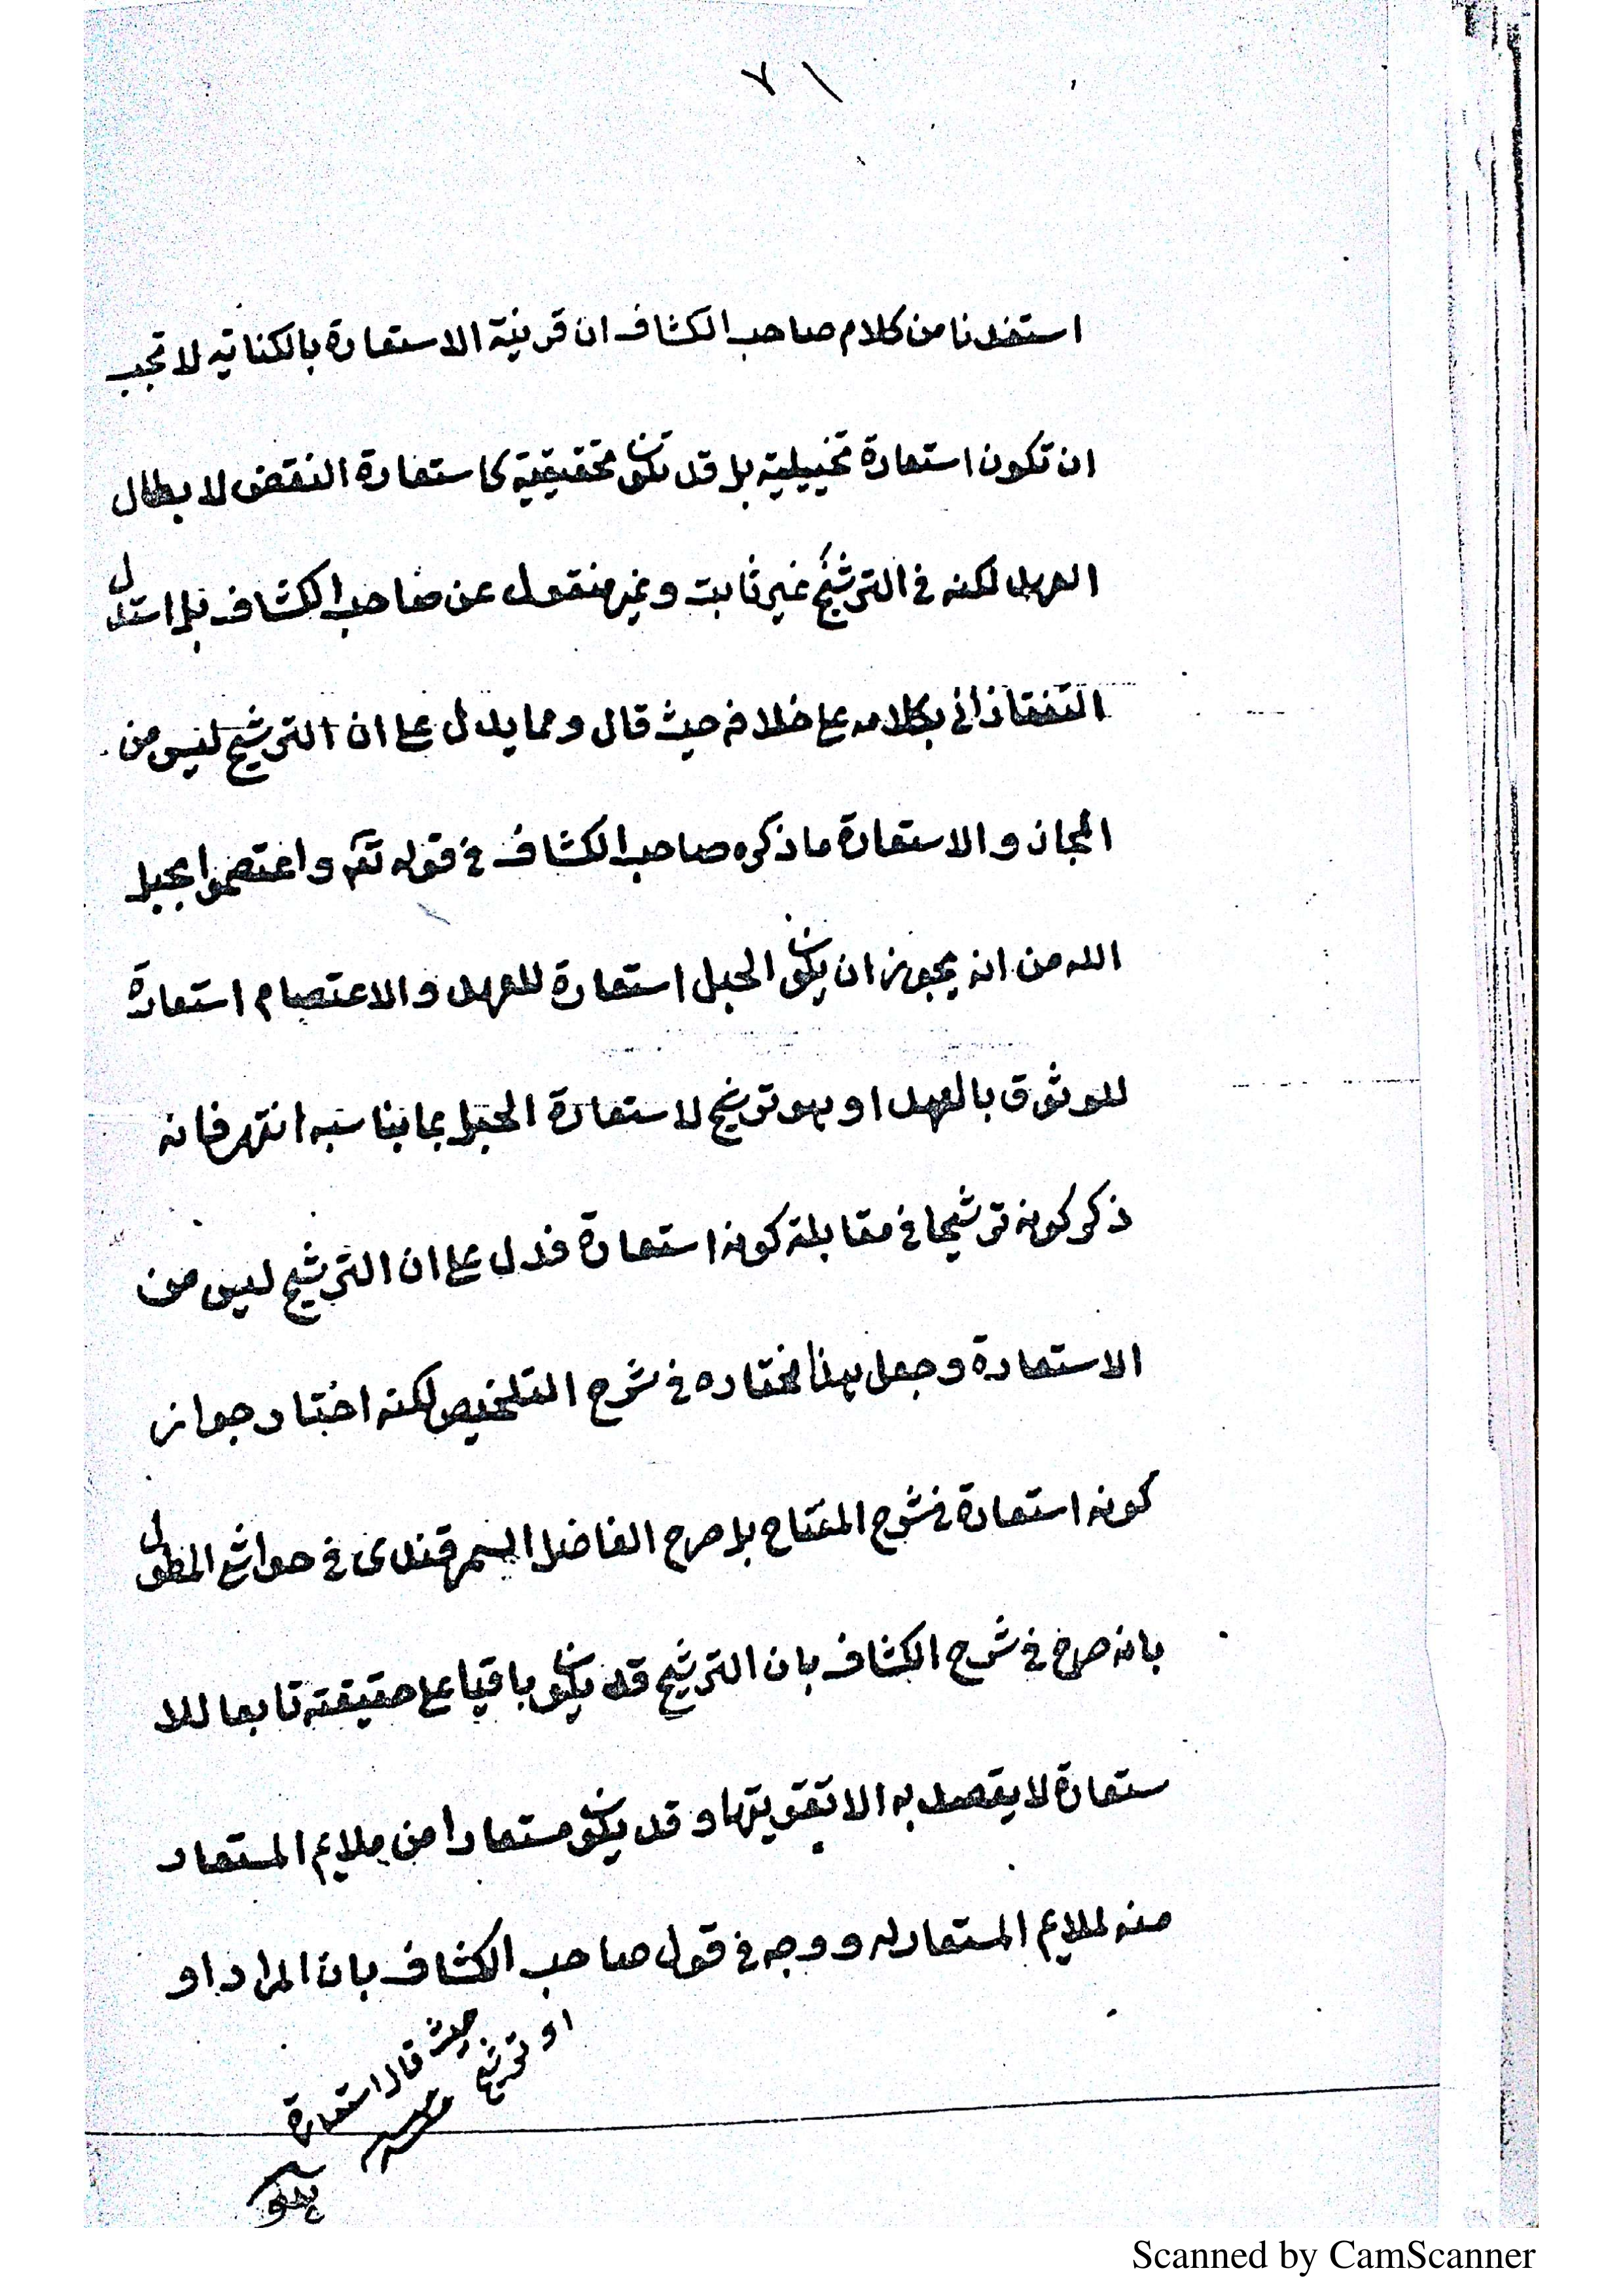 استفدنا من كلام صاحب الكشاف ان قرينة الاستعارة بالكناية لا تجب
ان تكون استعارة تخييلية بل قد تكون تحقيقية كاستعارة النقض لابطال
العهد لكنه في الترشيح غير ثابت وغير منقول عن صاحب الكشاف بل استدل
التفتازاني بكلامه على خلافه حيث قال ومما يدل على ان الترشيح ليس من
المجاز والاستعارة ما ذكره صاحب الكشاف في قوله تعم واعتصموا بحبل
الله من انه يجوز ان يكون الحبل استعارة للعهد والاعتصام استعارة
للوثوق بالعهد او هو ترشيح لاستعارة الحبل بما يناسبه انتهى فانه
ذكر كونه ترشيحا في مقابلة كونه استعارة فدل على ان الترشيح ليس من
الاستعارة وجعل هذا مختاره في شرح التلخيص لكنه اختار جواز
كونه استعارة في شرح المفتاح بل صرح الفاضل السمرقندى في حواشي المطول
بانه صرح في شرح الكشاف بان الترشيح قد يكون باقيا على حقيقته تابعا للا
ستعارة لا يقصد به الا تقويتها وقد يكون مستعارا من ملايم المستعار
منه لملايم المستعار له ووجه في قول صاحب الكشاف بان المراد او
حيث قال استعارة
او ترشيح